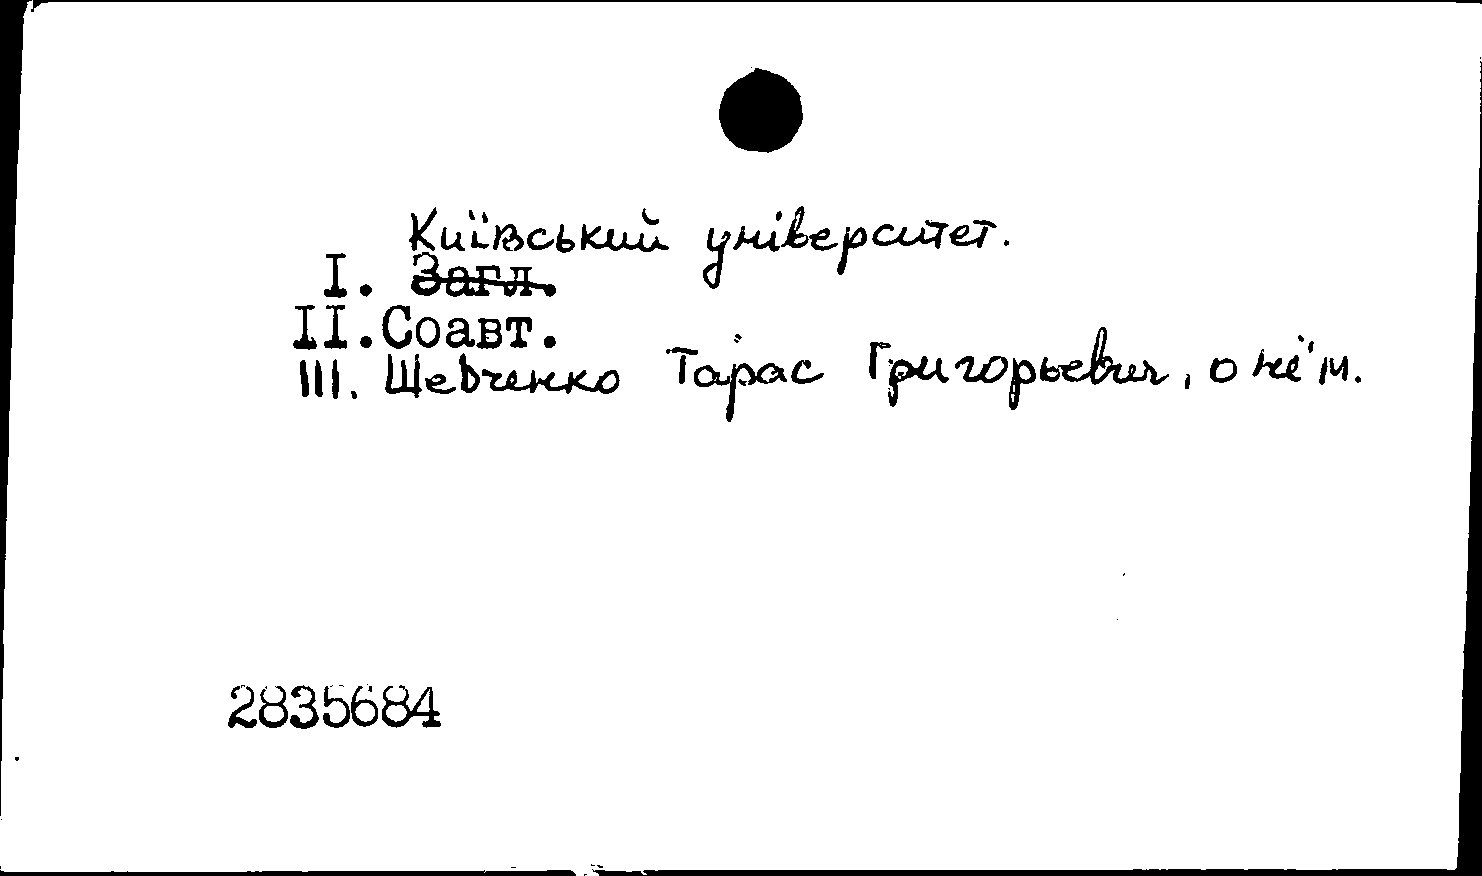 Київський університет.
I. Загл.
II. Соавт.
III. Шевченко Тарас Григорьевич, о нём.
2835684